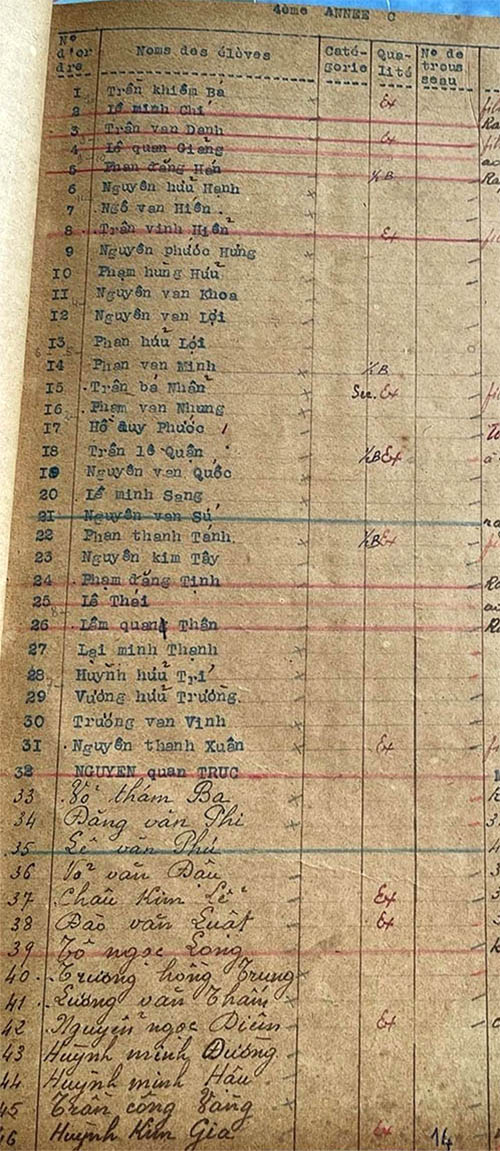 4ème ANNEE C
N° d'or dre Noms des élèves Caté- gorie Qua- lité N° de trous seau
1 Trần khiêm Bá Ex
2 Lê minh Chí
3 Trần van Danh Ex
4 Lê quan Giảng
5 Phan đăng Hán ½B
6 Nguyễn hữu Hạnh
7 Ngô van Hiến
8 Trần vinh Hiển Ex
9 Nguyễn phước Hưng
10 Phạm hưng Hữu
11 Nguyễn van Khoa
12 Nguyễn van Lợi
13 Phan hữu Lợi
14 Phan van Minh ½B
15 Trần bá Nhẫn Ser. Ex
16 Phạm van Nhung
17 Hồ duy Phước
18 Trần lê Quân ½B Ex
19 Nguyễn van Quốc
20 Lê minh Sang
21 Nguyễn van Sú
22 Phan thanh Tánh ½B Ex
23 Nguyễn kim Tây
24 Phạm đăng Tịnh
25 Lê Thái
26 Lâm quang Thân
27 Lại minh Thạnh
28 Huỳnh hữu Trí
29 Vương hữu Trường
30 Trương van Vinh
31 Nguyễn thanh Xuân Ex
32 NGUYEN quan TRUC
33 Võ thám Ba
34 Đăng văn Phi
35 Lê văn Phú
36 Võ văn Đâu
37 Châu Kim Lê Ex
38 Đào văn Luật Ex
39 Tô ngọc Long
40 Trương hồng Trung
41 Lương văn Thắm
42 Nguyễn ngọc Diệm Ex
43 Huỳnh minh Đường
44 Huỳnh minh Hậu
45 Trần công Vàng
46 Huỳnh Kim Gia Ex 14